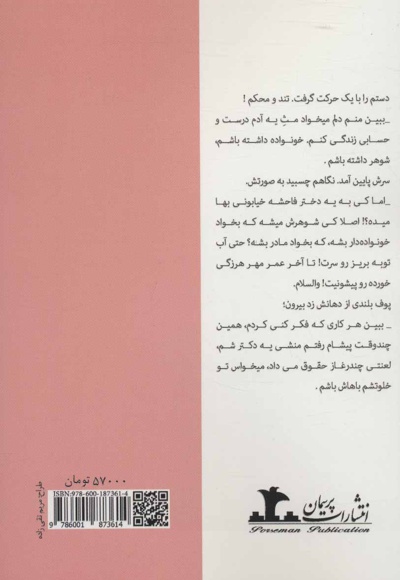 دستم را با یک حرکت گرفت. تند و محکم !
_ببین منم دلم میخواد مثِ یه آدم درست و
حسابی زندگی کنم. خونواده داشته باشم،
شوهر داشته باشم .
سرش پایین آمد. نگاهم چسبید به صورتش.
_اما کی به یه دختر فاحشه خیابونی بها
میده؟! اصلا کی شوهرش میشه که بخواد
خونواده‌دار بشه، که بخواد مادر بشه؟ حتی آب
توبه بریز رو سرت! تا آخر عمر مهر هرزگی
خورده رو پیشونیت! والسلام.
پوف بلندی از دهانش زد بیرون؛
_ ببین هر کاری که فکر کنی کردم، همین
چندوقت پیشام رفتم منشی یه دکتر شم،
لعنتی چندرغاز حقوق می داد، میخواس تو
خلوتشم باهاش باشم .
۵۷۰۰۰ تومان
ISBN:978-600-187361-4
9 786001 873614
طراح: مریم تقی زاده
انتشارات پرسمان
Porseman Publication